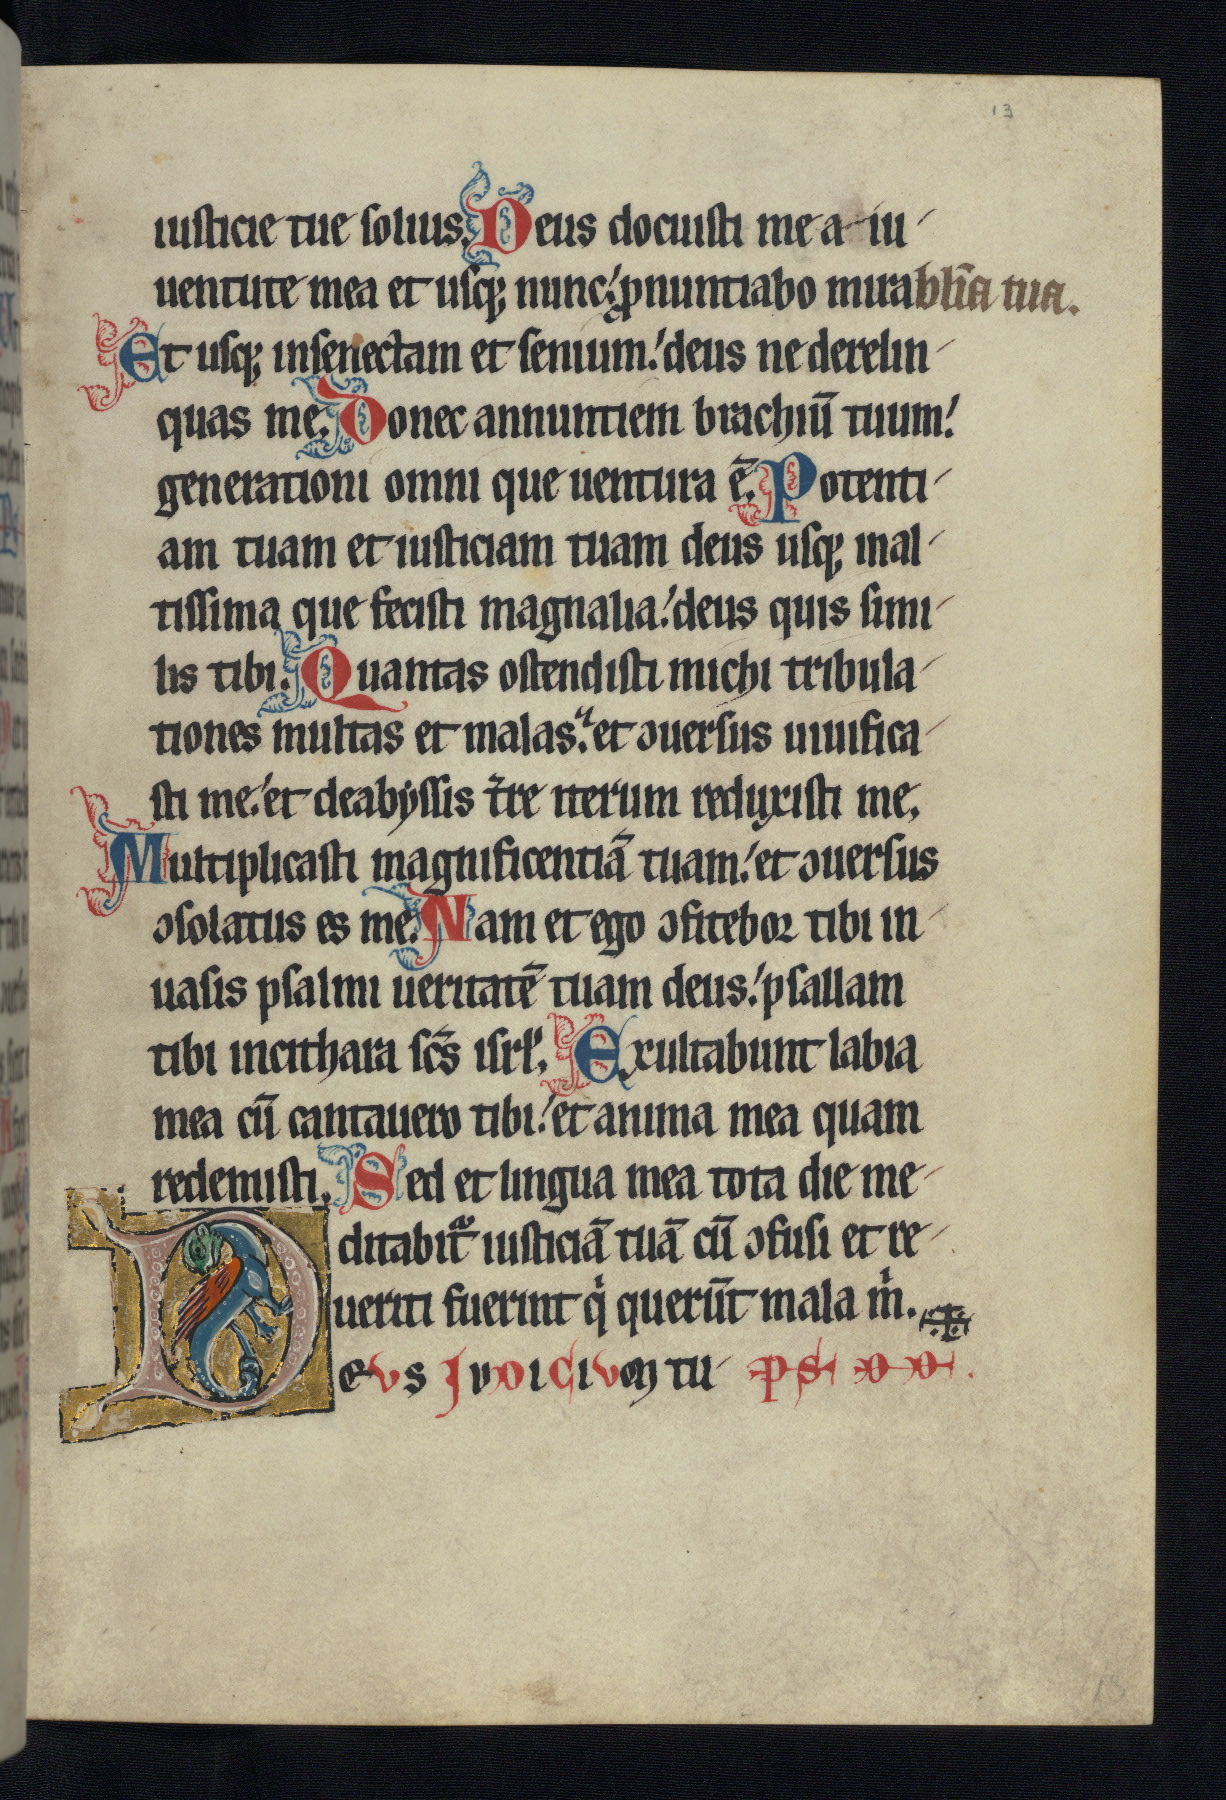 13
iusticie tue solius. Deus docuisti me a iu
uentute mea et usq; nunc: ꝓnuntiabo mirabl̄ia tua.
Et usq; in senectam et senium: deus ne derelin
quas me. Donec annuntiem brachiū tuum:
generationi omni que uentura ē. Potenti
am tuam et iusticiam tuam deus usq; in al
tissima que fecisti magnalia: deus quis simi
lis tibi. Quantas ostendisti michi tribula
tiones multas et malas: et ↄuersus uiuifica
sti me: et de abyssis t̄re iterum reduxisti me.
Multiplicasti magnificentiā tuam: et ↄuersus
ↄsolatus es me. Nam et ego ↄfitebor tibi in
uasis psalmi ueritatē tuam deus: psallam
tibi in cithara sc̄s isrl̄. Exultabunt labia
mea cū cantauero tibi: et anima mea quam
redemisti. Sed et lingua mea tota die me
ditabit᷑ iusticiā tuā cū ↄfusi et re
ueriti fuerint qͥ querūt mala mͥ.
Deus Judicium tu
13